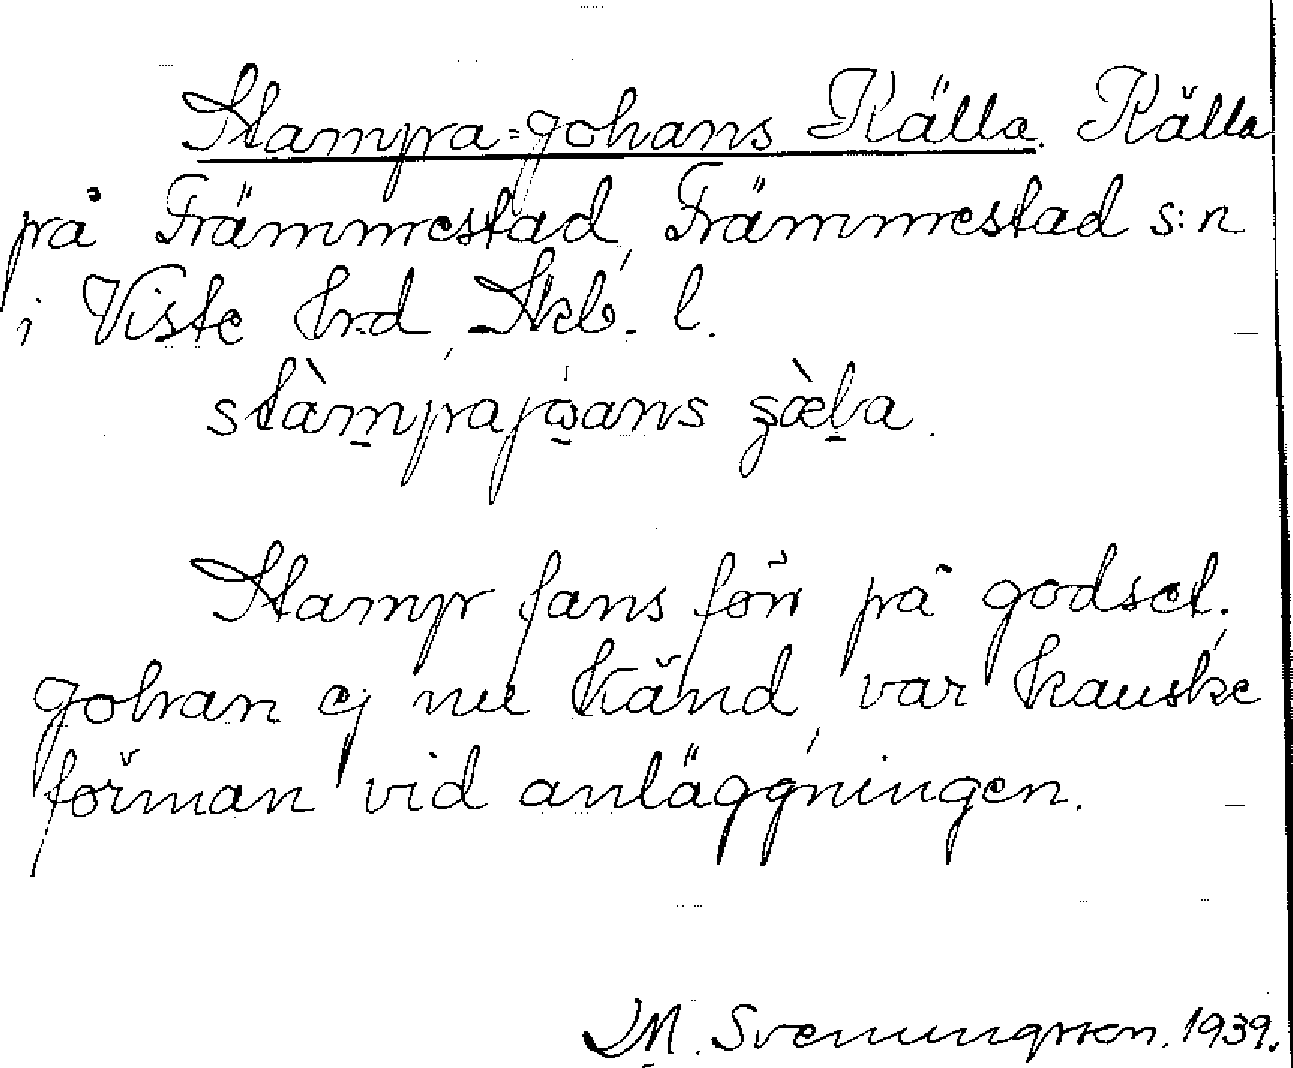 Stampa-Johans Källa. Källa
på Främmestad, Främmestad s:n
i Viste hrd, Skb. l.
stàmpajɷans ʒæ̀la.
Stamp fans förr på godset.
Johan ej nu känd, var kanske
förman vid anläggningen.
M. Svenungsson. 1939.